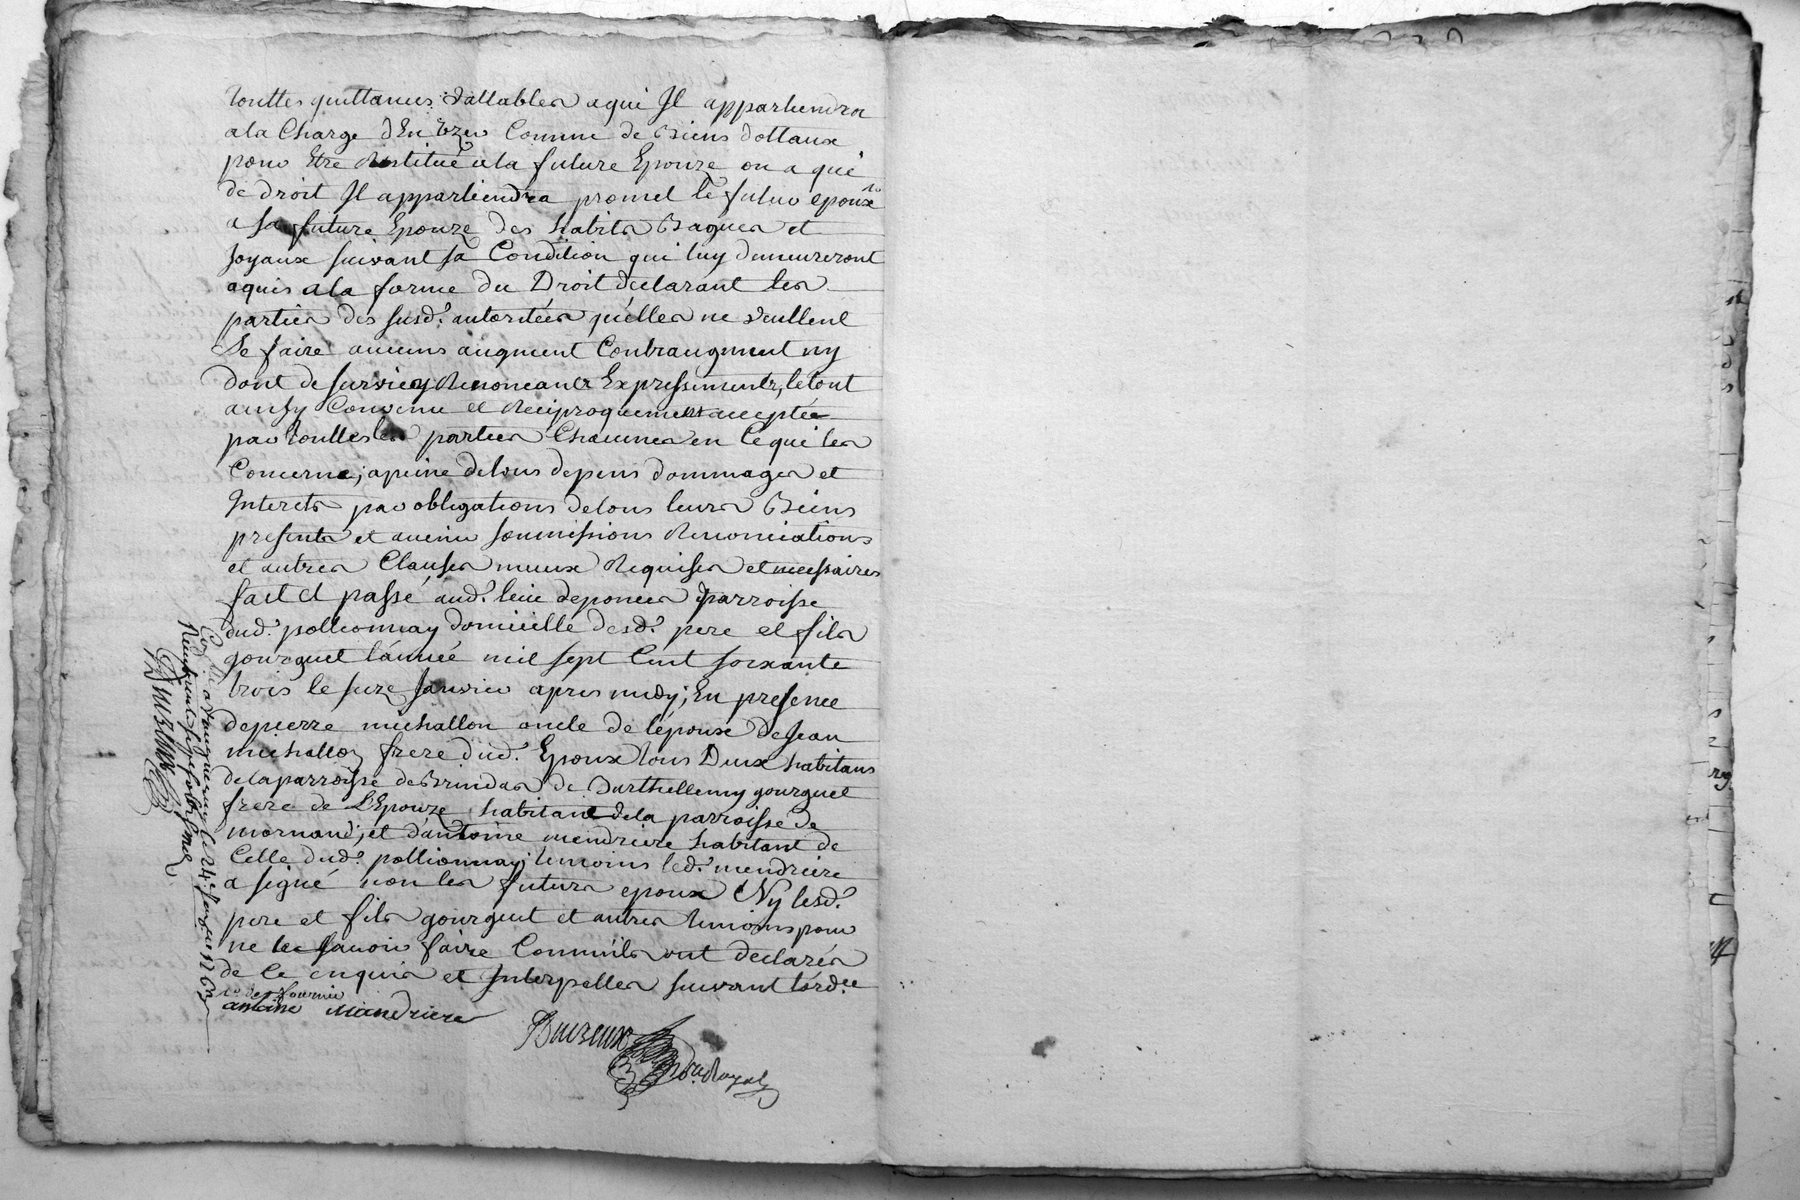 touttes quittances vallables a qui Il appartiendra
a la Charge d'En Uzer Comme de Biens dottaux
pour Etre Restitué a la future Epouze ou a qui
de droit Il appartiendra promet le futur epoux
a sa future Epouze des habits Bagues et
Joyaux suivant sa Condition qui luy demeureront
aquis a la forme du Droit declarant les
parties des susd.^ autoritées qu'elles ne veullent
se faire aucuns augment Contraugment ny
dont de survie y Renonceants Expressement, le tout
ainsy Convenu et Reciproquement acceptée
par touttes les parties Chacunes en Ce qui les
Concerne, a peine de tous depens dommages et
Interets par obligations de tous leurs Biens
presents et avenir soumissions Renonciations
et autres Clauses mieux Requises et necessaires
fait et passé aud.^ lieu deponcer parroisse
dud.^ pollionnay domicille desd.^ pere et fils
gourguet l'année mil sept Cent soixante
trois le seize Janvier apres midy; En presence
de pierre michallon oncle de l'époux de Jean
michallon frere dud.^ Epoux tous Deux habitans
de la parroisse de Brindas de Barthellemy gourguet
frere de L'Epouze habitant de la parroisse de
mornand, et d'antoine mendriere habitant de
Celle dud.^ pollionnay; temoins led.^ mendriere
a signé non les futurs epoux Ny lesd.^
pere et fils gourguet et autres temoins pour
ne le savoir faire Comm'ils ont declarés
de Ce enquis et Interpellés suivant l'ord.ce
antoine mandriere
Duizeux
no.re Royal
Con.^ a vaugneray le 24.^ Janvier 1763
Duizeux